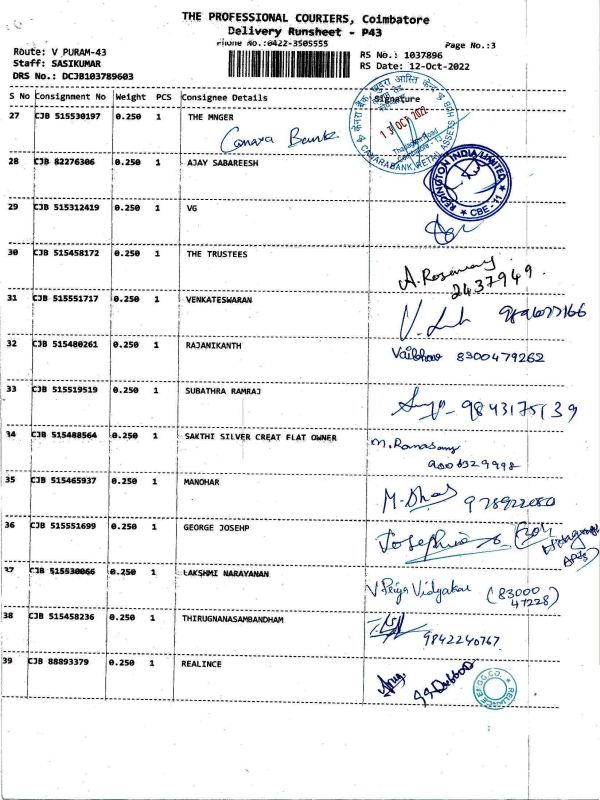 THE PROFESSIONAL COURIERS, Coimbatore
Delivery Runsheet - P43
Phone No.:0422-3505555
Page No.:3
Route: V PURAM-43
RS No.: 1037896
Staff: SASIKUMAR
RS Date: 12-Oct-2022
DRS No.: DCJB103789603
S No Consignment No Weight PCS Consignee Details Signature
27 CJB 515530197 0.250 1 THE MNGER
Canara Bank
13 OCT 2022
28 CJB 82276306 0.250 1 AJAY SABAREESH
REDINGTON INDIA LIMITED
★ CBE - 11 ★
29 CJB 515312419 0.250 1 VG
30 CJB 515458172 0.250 1 THE TRUSTEES
A. Rosemary
2437949
31 CJB 515551717 0.250 1 VENKATESWARAN
32 CJB 515480261 0.250 1 RAJANIKANTH
Vaibhav 8300479262
33 CJB 515519519 0.250 1 SUBATHRA RAMRAJ
9843175139
34 CJB 515488564 0.250 1 SAKTHI SILVER CREAT FLAT OWNER
35 CJB 515465937 0.250 1 MANOHAR
36 CJB 515551699 0.250 1 GEORGE JOSEHP
37 CJB 515530066 0.250 1 LAKSHMI NARAYANAN
V Priya Vidyakar (83000
47228)
38 CJB 515458236 0.250 1 THIRUGNANASAMBANDHAM
9842240767
39 CJB 88893379 0.250 1 REALINCE